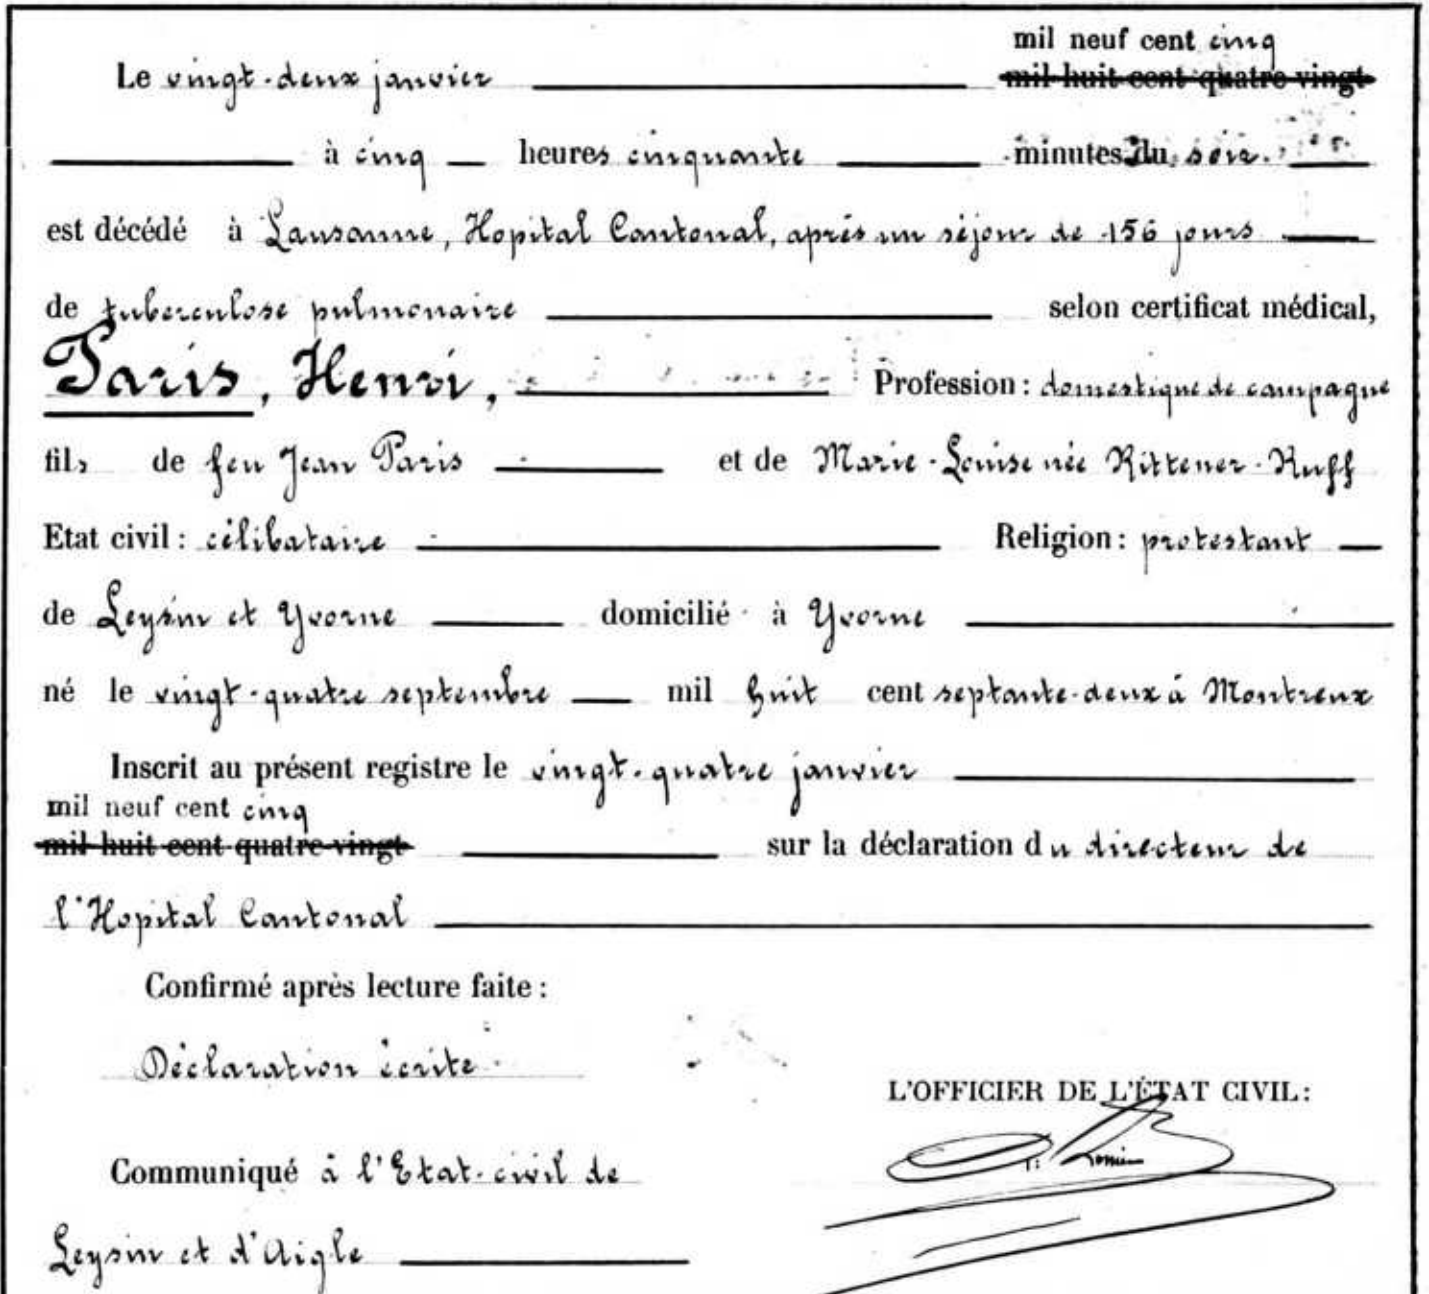 mil neuf cent cinq
Le vingt-deux janvier mil huit cent quatre vingt
à cinq heures cinquante minutes du soir.
est décédé à Lausanne, Hopital Cantonal, après un séjour de 156 jours
de tuberculose pulmonaire selon certificat médical,
Paris, Henri, Profession : domestique de campagne
fils de feu Jean Paris et de Marie-Louise née Rittener-Ruff
Etat civil : célibataire Religion : protestant
de Leysin et Yvorne domicilié à Yvorne
né le vingt-quatre septembre mil huit cent septante-deux à Montreux
Inscrit au présent registre le vingt-quatre janvier
mil neuf cent cinq
mil huit cent quatre vingt sur la déclaration du directeur de
l'Hopital Cantonal
Confirmé après lecture faite :
Déclaration écrite
L'OFFICIER DE L'ÉTAT CIVIL :
Communiqué à l'Etat-civil de
Leysin et d'Aigle